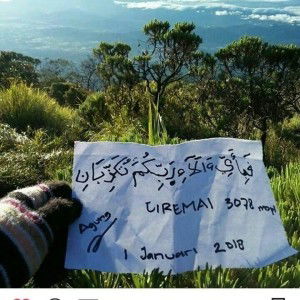 فَبِأَيِّ آلَاءِ رَبِّكُمَا تُكَذِّبَانِ
CIREMAI 3078 mdpl
Agung
1 Januari 2018